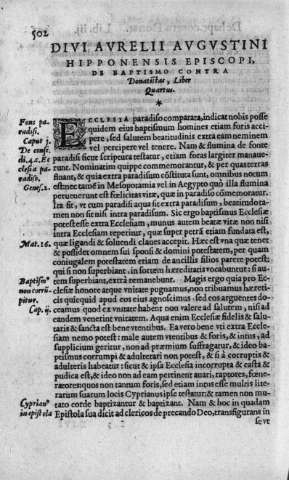 502
DIVI AVRELII AVGVSTINI
HIPPONENSIS EPISCOPI,
DE BAPTISMO CONTRA
Donatistas, Liber
Quartus.
ECCLESIA paradiso comparata, indicat nobis posse
quidem eius baptismum homines etiam foris acci
pere, sed salutem beatitudinis extra eam neminem
vel percipere vel tenere. Nam & flumina de fonte
paradisi sicut scriptura testatur, etiam foras largiter manave-
runt. Nominatim quippe commemorantur, & per quas terras
fluant, & quia extra paradisum cōstituta sunt, omnibus notum
est: nec tamē in Mesopotamia vel in Aegypto quò illa flumina
peruenerunt est foelicitas vitæ, quæ in paradiso cōmemoratur.
Ita fit, vt cum paradisi aqua sit extra paradisum, beatitudo ta-
men non sit nisi intra paradisum. Sic ergo baptismus Ecclesiæ
potest esse extra Ecclesiam, munus autem beatæ vitæ non nisi
intra Ecclesiam reperitur, quæ super petrā etiam fundata est,
quæ ligandi & soluendi claues accepit. Hæc est vna quæ tenet
& possidet omnem sui sponsi & domini potestatem, per quam
coniugalem potestatem etiam de ancillis filios parere potest:
qui si non superbiant, in sortem hæreditatis vocabuntur: si au
tem superbiant, extrà remanebunt. Magis ergo quia pro Ec-
clesiæ honore atque vnitate pugnamus, non tribuamus hæreti-
cis quicquid apud eos eius agnoscimus, sed eos arguentes do-
ceamus quod ex vnitate habent non valere ad salutem, nisi ad
eandem venerint vnitatem. Aqua enim Ecclesiæ fidelis & salu-
taris & sancta est bene vtentibus. Ea vero bene vti extra Eccle-
siam nemo potest: male autem vtentibus & foris, & intus, ad
supplicium geritur, non ad præmium suffragatur, & ideo ba-
ptismus corrumpi & adulterari non potest, & si à corruptis &
adulteris habeatur: sicut & ipsa Ecclesia incorrupta & casta &
pudica est, & ideo non ad eam pertinent auari, raptores, foene-
ratores: quos non tantum foris, sed etiam intus esse multis lite-
rarum suarum locis Cyprianus ipse testatur: & tamen non mu-
tato corde baptizantur & baptizant. Nam & hoc in quadam
Epistola sua dicit ad clericos de precando Deo, transfigurans in
se ve
Fons pa-
radisi.
Caput j.
Ecclesia pa-
radiso.
Genes. 2.
Mat. 16.
Baptismus
non corrum-
pitur.
Cap. ij.
Cyprian9
in epistola